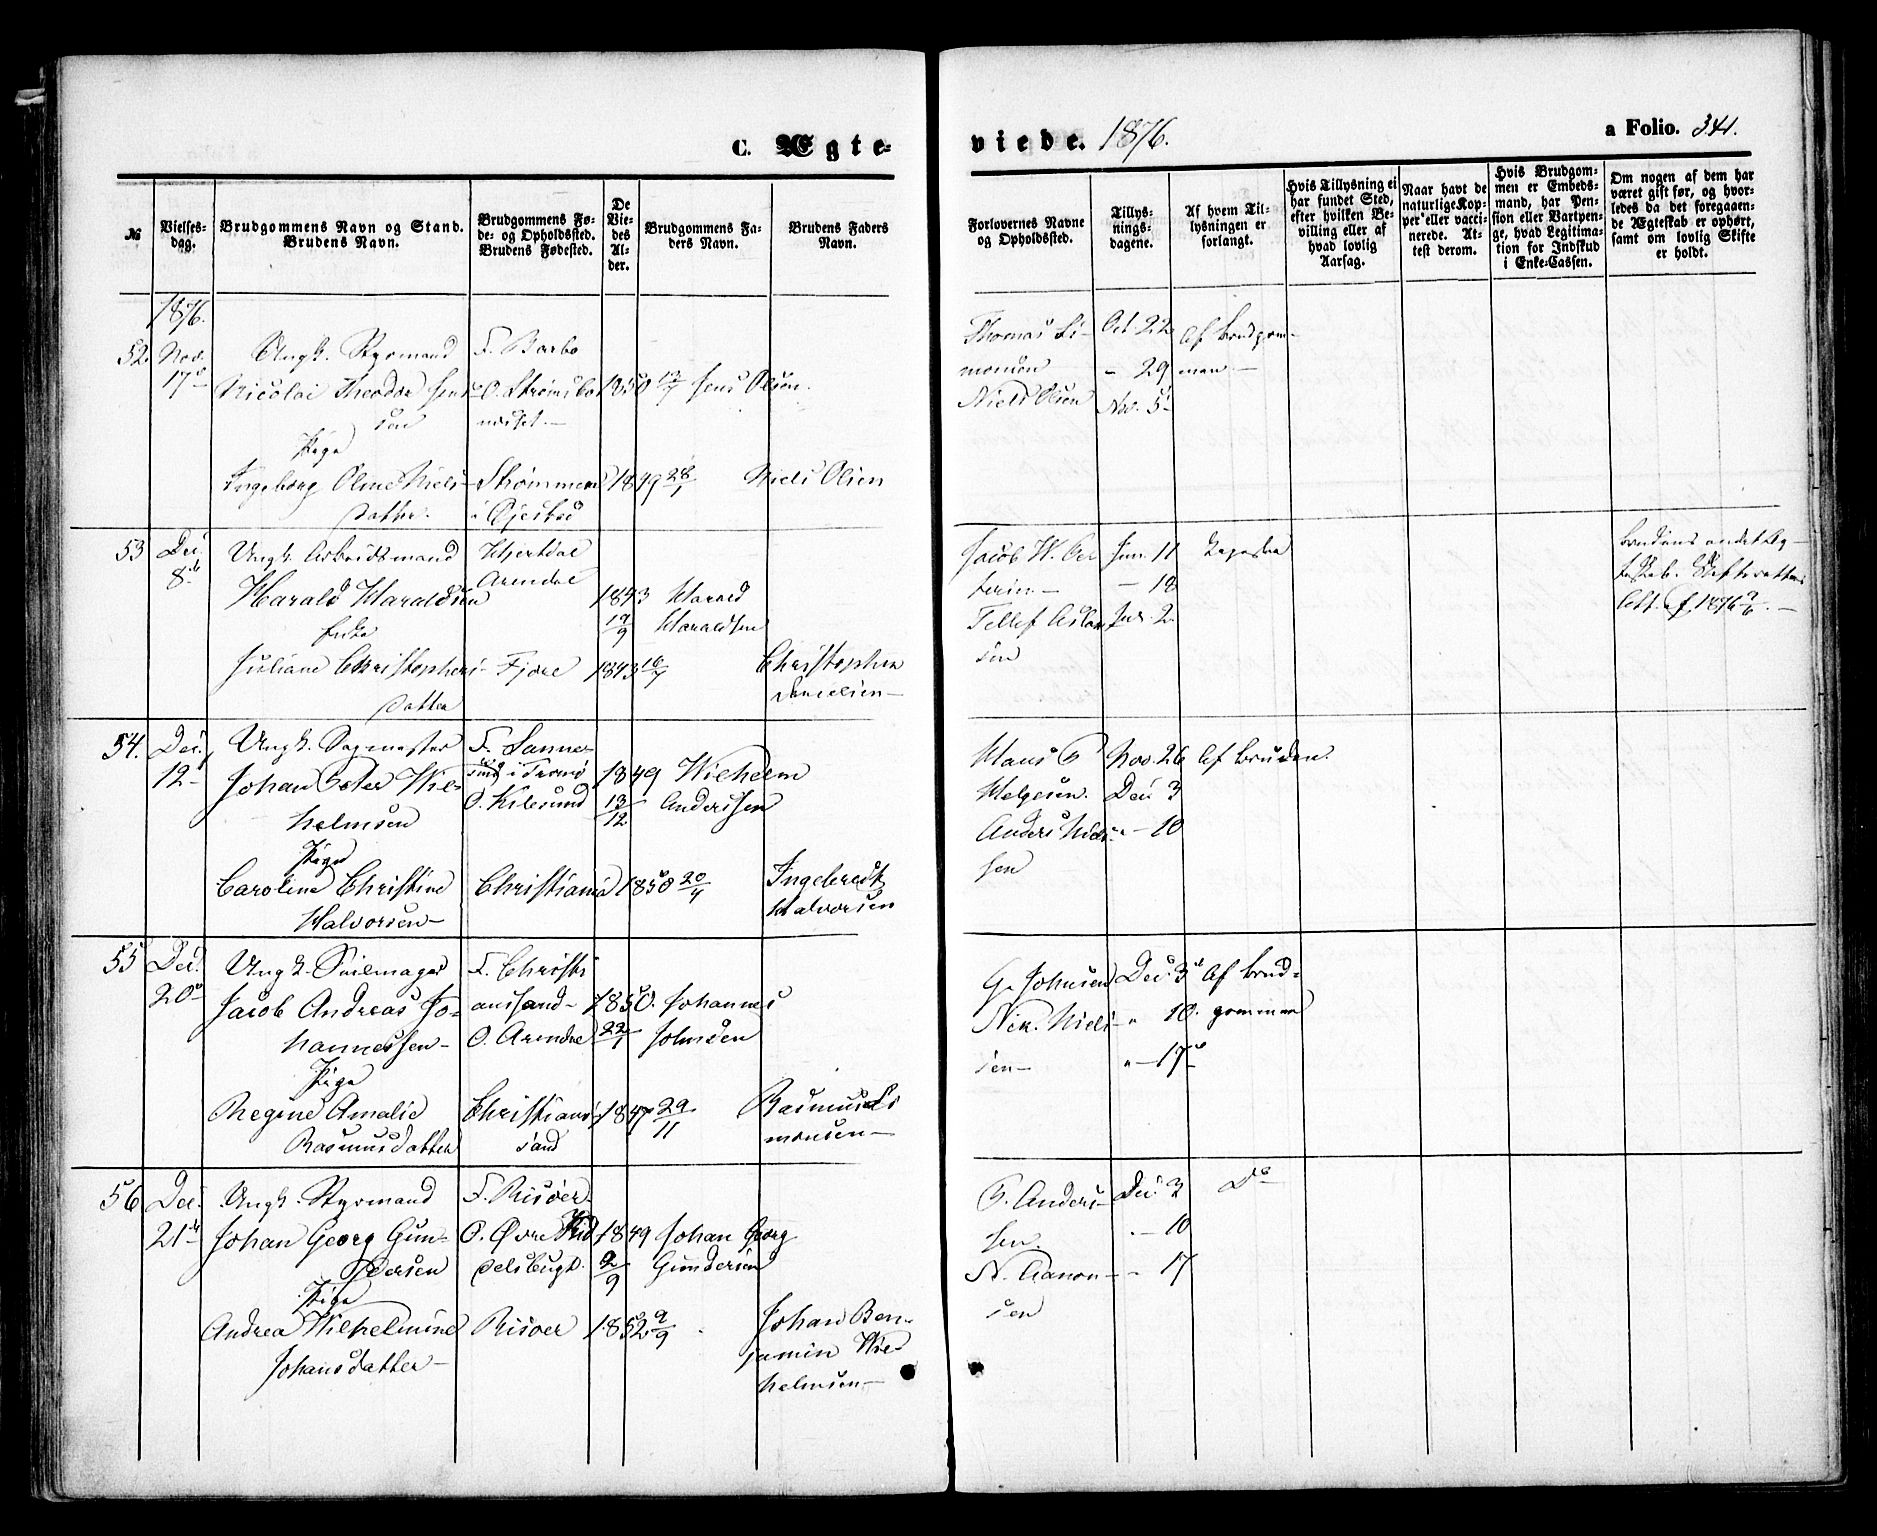 C. Ægte-
viede. 1876.
a Folio. 341.
№
Vielses-
dag.
Brudgommens Navn og Stand.
Brudens Navn.
Brudgommens Fø-
de- og Opholdssted.
Brudens Fødested.
De
Vie-
des
Al-
der.
Brudgommens Fa-
ders Navn.
Brudens Faders
Navn.
Forlovernes Navne
og Opholdssted.
Tillys-
nings-
dagene.
Af hvem Til-
lysningen er
forlangt.
Hvis Tillysning ei
har fundet Sted,
efter hvilken Be-
villing eller af
hvad lovlig
Aarsag.
Naar havt de
naturlige Kop-
per eller vacci-
nerede. At-
test derom.
Hvis Brudgom-
men er Embeds-
mand, har Pen-
sion eller Vartpen-
ge, hvad Legitima-
tion for Indskud
i Enke-Cassen.
Om nogen af dem har
været gift før, og hvor-
ledes da det foregaaen-
de Ægteskab er ophørt,
samt om lovlig Skifte
er holdt.
1876.
52. Nov. 17de
Ungk. Styrmand
Nicolai Theodor Jens-
sen
Pige
Ingeborg Oline Niels-
datter.
F. Barbo
O. Strømsbo-
neset.
Strømmen
i Øjestad
1850 13/7
1849 28/1
Jens Olsen.
Niels Olsen
Thomas Si-
monsen
Niels Olsen
Oct. 22
- 29
Nov. 5
Af Brudgom-
men.
53 Dec. 8de
Ungk. Arbeidsmand
Harald Haraldsen
Enke
Juliane Christophers-
datter
Hjertdal
Arendal
Fjære
1843
17/9
1843 16/7
Harald
Haraldsen
Christopher
Danielsen
Jacob W.
Tellef Aslak
sen
Jun. 11
- 18
Jul. 2
Brudens andet Æg-
teskab. Skifterettens
Att. af 1876 7/6.
54. Dec. 12
Ungk. Sagmester
Johan Peter Wil-
helmsen
Pige
Caroline Christine
Halvorsen
F. Sanne-
sund i Tromø
O. Kilesund
Christiania
1849
13/12
1850 20/4
Wilhelm
Anderssen
Ingebregt
Halvorsen
Hans P
Helgesen.
Anders Niels-
sen
Nov. 26
Dec. 3
" - 10
Af Bruden.
55 Dec. 20de
Ungk. Seilmager
Jacob Andreas Jo-
hannessen
Pige
Regine Amalie
Rasmusdatter
F. Christi
anssand
O. Arendal
Christians-
sand
1850.
22/1
1847 29/11
Johannes
Johnsen
Rasmus Si
monsen
G. Johnsen
Nik. Niels-
sen
Dec. 3
" 10.
" - 17
Af Brud-
gommen
56 Dec. 21de
Ungk. Styrmand
Johan Georg Gun-
dersen
Pige
Andrea Wilhelmine
Johansdatter
F. Risøer
O. Øvre Tid
delsbugt.
Risøer
1849
2/9
1852 9/9
Johan Georg
Gundersen
Johan Ben-
jamin Wil
helmsen
P. Anders-
sen.
N. Aanon-
sen
Dec. 3
" - 10
- 17
Do